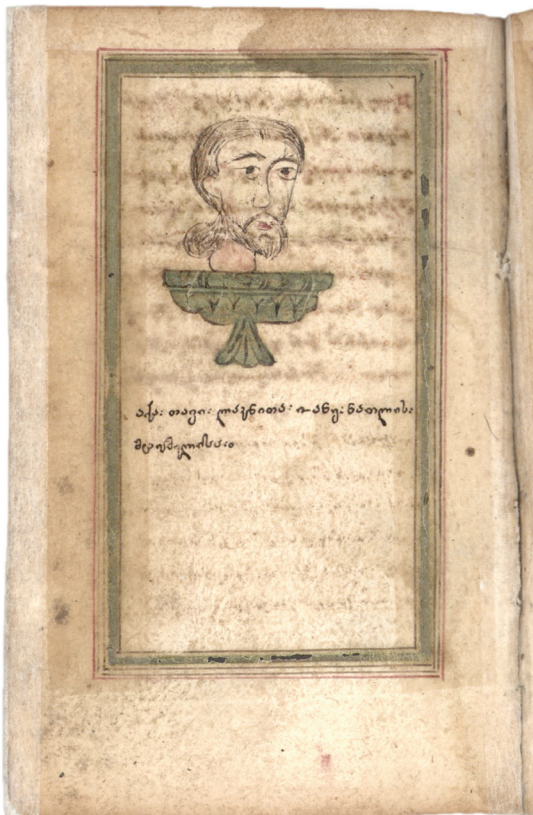 აქა: თავი: ლაკნითა: ი~ანე: ნათლის:
მცემელისა: